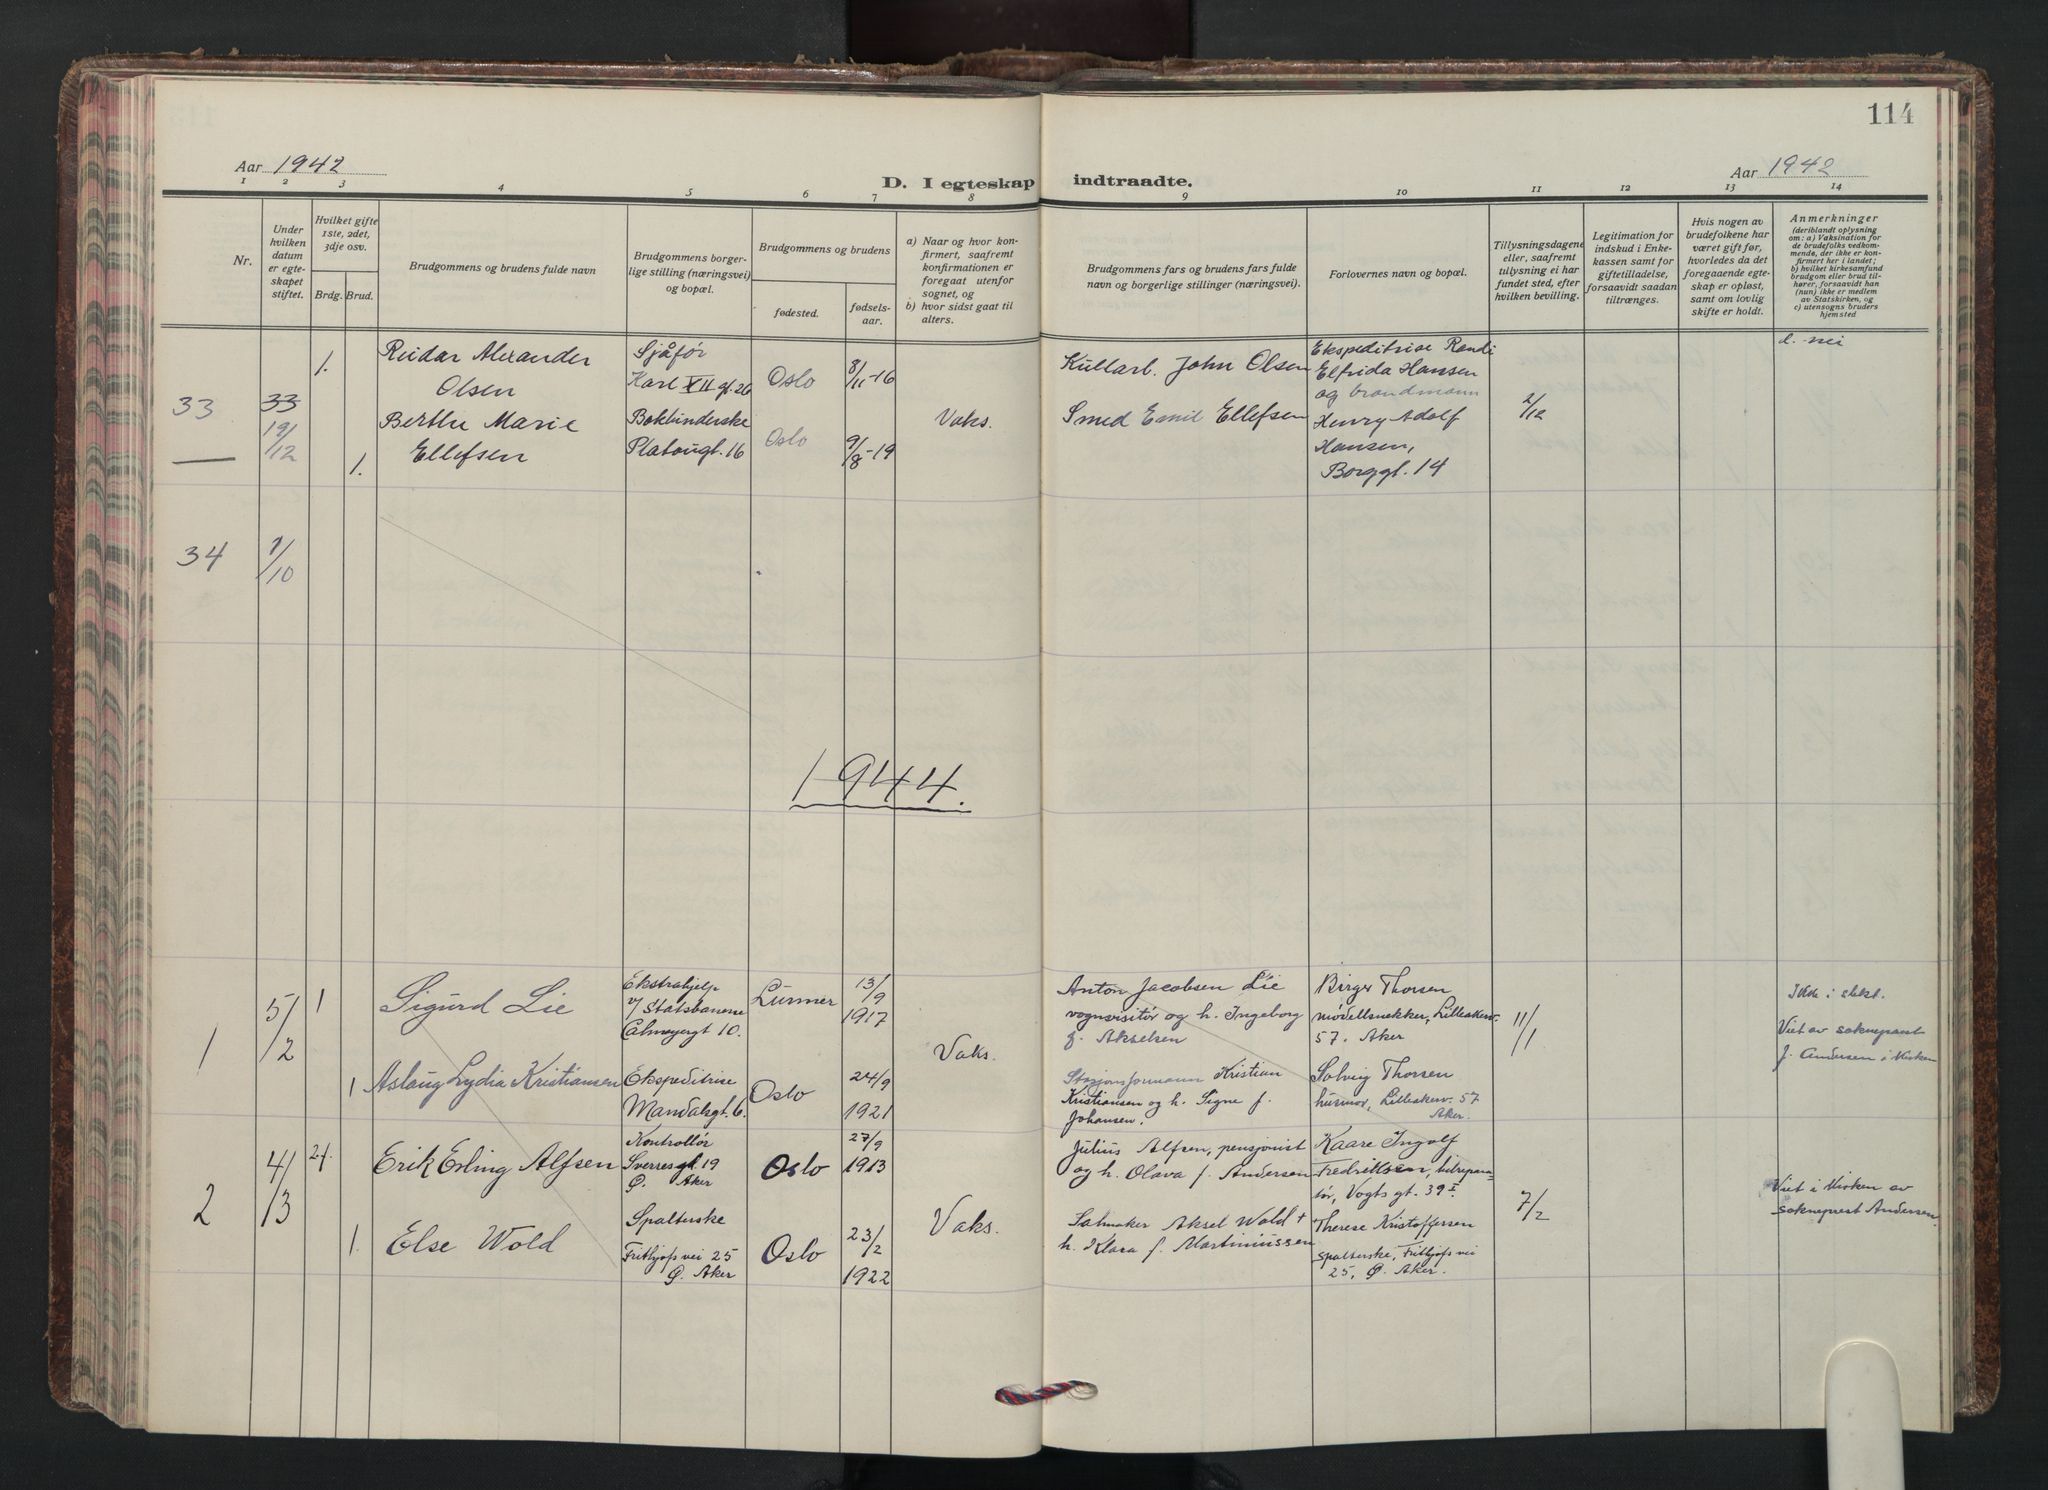 114
Aar 1942
D. I egteskap indtraadte.
Aar 1942
1 2 3 4 5 6 7 8 9 10 11 12 13 14
Nr.
Under
hvilken
datum
er egte-
skapet
stiftet.
Hvilket gifte
1ste, 2det,
3dje osv.
Brdg. Brud.
Brudgommens og brudens fulde navn
Brudgommens borger-
lige stilling (næringsvei)
og bopæl.
Brudgommens og brudens
fødested.
fødsels-
aar.
a) Naar og hvor kon-
firmert, saafremt
konfirmationen er
foregaat utenfor
sognet, og
b) hvor sidst gaat til
alters.
Brudgommens fars og brudens fars fulde
navn og borgerlige stillinger (næringsvei).
Forlovernes navn og bopæl.
Tillysningsdagene
eller, saafremt
tillysning ei har
fundet sted, efter
hvilken bevilling.
Legitimation for
indskud i Enke-
kassen samt for
giftetilladelse,
forsaavidt saadan
tiltrænges.
Hvis nogen av
brudefolkene har
været gift før,
hvorledes da det
foregaaende egte-
skap er opløst,
samt om lovlig
skifte er holdt.
Anmerkninger
(deriblandt oplysning
om: a) Vaksination for
de brudefolks vedkom-
mende, der ikke er kon-
firmert her i landet;
b) hvilket kirkesamfund
brudgom eller brud til-
hører, forsaavidt han
(hun) ikke er medlem
av Statskirken, og
c) utensogns bruders
hjemsted
33
33
19/12
1.
Reidar Alexander
Olsen
Sjåfør
Karl XII gt. 26
Oslo
8/11-16
Kullarb. John Olsen
Ekspeditrise Randi
Elfrida Hansen
og brandmann
Henry Adolf
Hansen,
Borggt. 14
2/12
d. nei
1.
Berthe Marie
Ellefsen
Bokbinderske
Platougt. 16
Oslo
9/8-19
Vaks.
Smed Emil Ellefsen
34
1/10
1944.
1
5/2
1
Sigurd Lie
Ekstrahjelp
v/ Statsbanene
Calmeyergt 10.
Lurmer
13/9
1917
Vaks.
Anton Jacobsen Lie
vognvisitør og h. Ingeborg
f. Akselsen
Birger Thorsen
modellsnekker, Lilleakerv.
57. Aker
11/1
Ikke i slekt.
Viet av sokneprest
J. Andersen i kirken
1
Aslaug Lydia Kristiansen
Ekspeditrise
Mandalsgt. 6.
Oslo
24/9
1921
Stasjonsformann Kristian
Kristiansen og h. Signe f.
Johansen.
Solveig Thorsen
husmor, Lilleakerv. 57
Aker.
2
4/3
Erik Erling Alfsen
Kontrollør
Sverresgt. 19
Ø. Aker
Oslo
27/9
1913
Vaks.
Julius Alfsen, pensjonist
og h. Olava f. Andersen
Kaare Ingolf
Fredriksen, bilrepara-
tør, Vogts gt. 39 I.
7/2
Viet i kirken av
sokneprest Andersen.
1.
Else Wold
Spalterske
Frithjofs vei 25
Ø. Aker
Oslo
23/2
1922
Salmaker Aksel Wold +
h. Klara f. Martiniussen
Therese Kristoffersen
spalterske, Frithjofs vei
25, Ø. Aker.